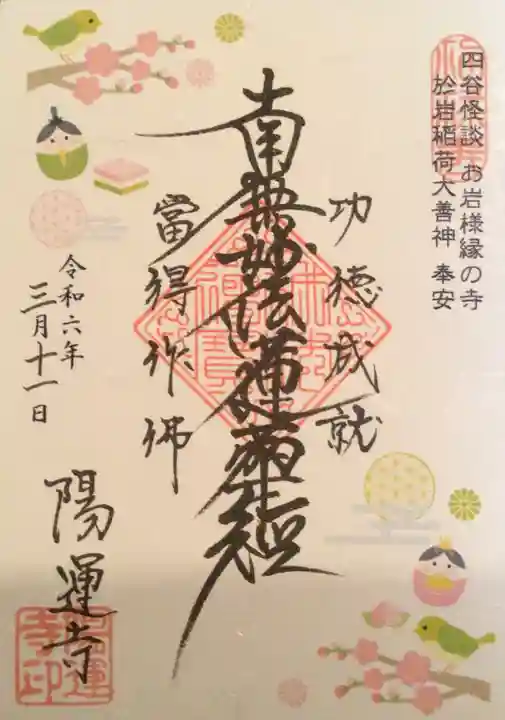 四谷怪談 お岩様縁の寺
於岩稲荷大善神 奉安
功徳成就
南無妙法蓮華経
當得作佛
令和六年
三月十一日
陽運寺
陽運寺印